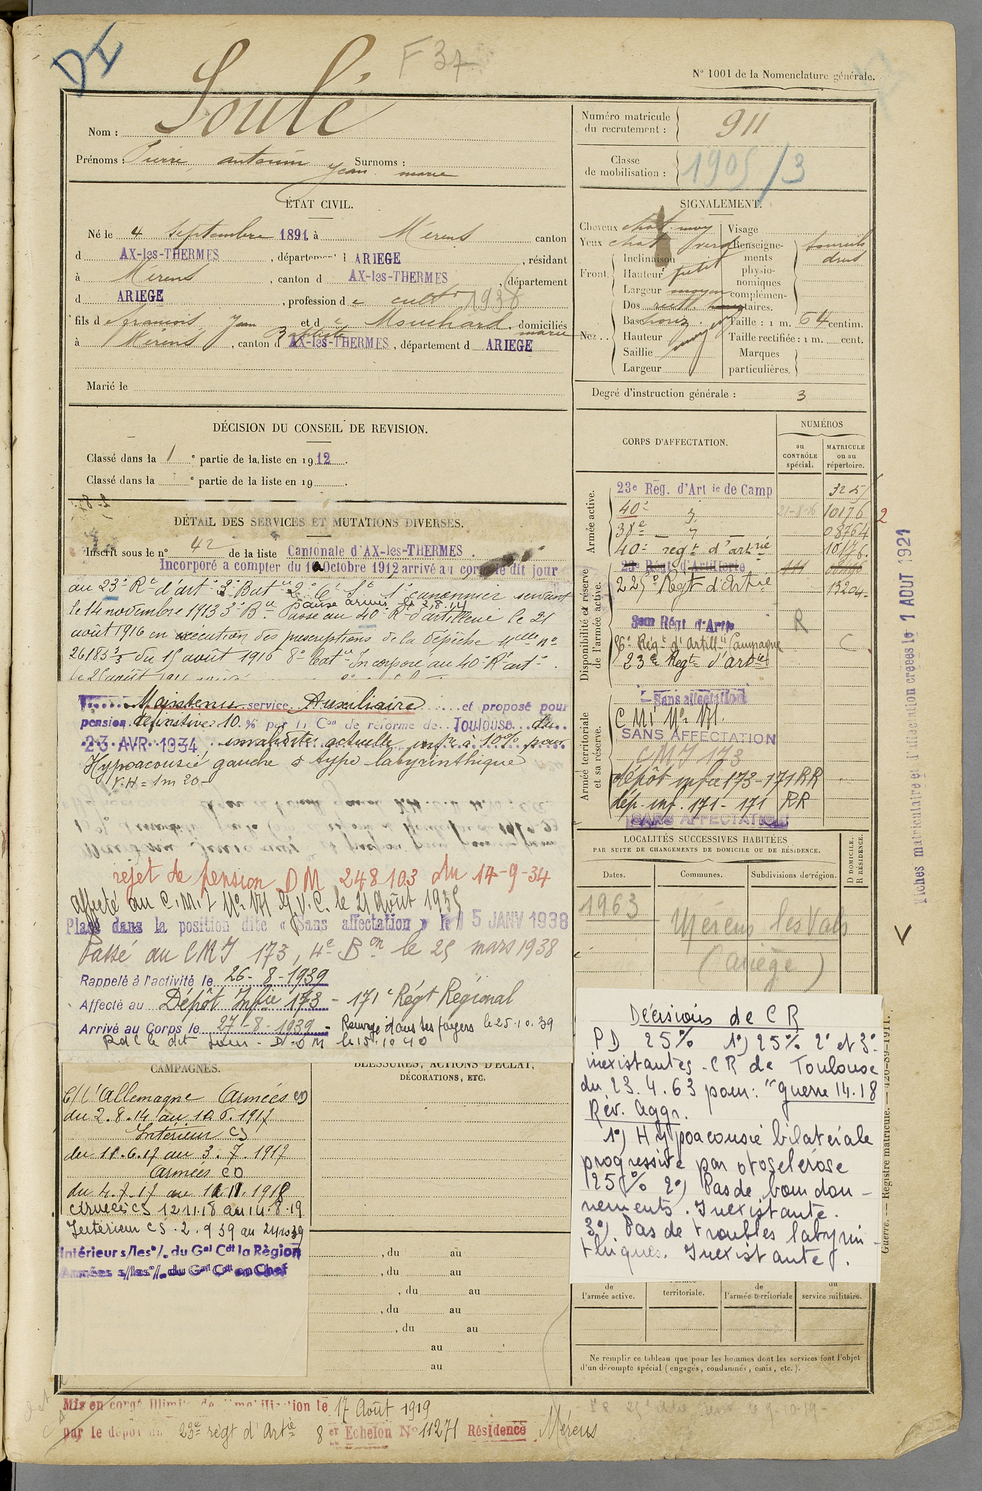 DI
F 37
N° 1001 de la Nomenclature générale.
Nom : Soulé
Prénoms : Pierre, antonin Jean marie Surnoms :
ÉTAT CIVIL.
Né le 4 septembre 1891 à Mérens canton
d AX-les-THERMES, département d ARIEGE, résidant
à Mérens, canton d AX-les-THERMES, département
d ARIEGE, profession d e cultr 1938
fils d e françois, Jean Baptiste et d e Mouchard marie, domiciliés
à Mérens, canton AX-les-THERMES, département d ARIEGE
Marié le
DÉCISION DU CONSEIL DE REVISION.
Classé dans la 1 e partie de la liste en 1912.
Classé dans la e partie de la liste en 19
DÉTAIL DES SERVICES ET MUTATIONS DIVERSES.
Inscrit sous le n° 42 de la liste Cantonale d'AX-les-THERMES.
Incorporé a compter du 10 Octobre 1912 arrivé au corps le dit jour
au 23e Rt d'art 1er canonnier servant
le 14 novembre 1913 3e Bie Passé au 40e Rt d'artillerie le 21
août 1916 en exécution des prescriptions de la dépêche mlle n°
26183 3/3 du 15 août 1916 8e Batie Incorporé au 40e Rt art
Maintenu service Auxiliaire et proposé pour
pension définitive 10 % par la Con de réforme de Toulouse du
23 AVR 1934, invalidité actuelle infre à 10% pour
Hypoacousie gauche à type labyrinthique
V.H = 1m 20
rejet de pension DM 248103 du 14-9-34
affecté au C.M.I
le 21 août 1935
Placé dans la position dite « Sans affectation » le 15 JANV 1938
Passé au CMI 173, 4e Bon le 25 mars 1938
Rappelé à l'activité le 26-8-1939
Affecté au Dépôt Infie 173 - 171e Régt Régional
Arrivé au Corps le 27-8-1939 - Renvoyé dans ses foyers le 25.10.39
RdC le dit jour - D. O M le 15.10 40
CAMPAGNES.
C/ l'Allemagne Armées CD
du 2.8.14 au 10.6.1917
Intérieur CS
du 11.6.17 au 3.7.1917
Armées CD
du 4.7.17 au 11.11.1918
Armées CS 12.11.18 au 14.8.19
Intérieur CS. 2.9 39 au 24 10 39
Intérieur s/les °/. du Gal Cdt la Règion
Armées s/les °/. du Gal Cdt en Chef
BLESSURES, ACTIONS D'ÉCLAT,
DÉCORATIONS, ETC.
, du au
, du au
, du au
, du au
, du au
au
au
Mis en congé illimité de démobilisation le 17 Août 1919
par le dépôt du 23e régt d'Artie 8er Echelon N° 11271 Résidence Mérens
Numéro matricule
du recrutement : 911
Classe
de mobilisation : 1905/3
SIGNALEMENT.
Cheveux chat. moy
Yeux chat verd
Front. Inclinaison
Hauteur petit
Largeur moyen
Dos rect.
Nez . . Base horiz
Hauteur moy
Saillie
Largeur
Visage
Renseignements physionomiques complémentaires. sourcils droit
Taille : 1 m. 64 centim.
Taille rectifiée : 1 m. cent.
Marques
particulières.
Degré d'instruction générale : 3
CORPS D'AFFECTATION.
NUMÉROS
au CONTRÔLE spécial.
MATRICULE ou au répertoire.
Armée active.
23e Rég. d'Artie de Camp 325
40e 21-8-16 10176 2
37e 08764
40e régt d'artrie 10176
Disponibilité et réserve de l'armée active.
23e Régt d'Artillerie
225e Régt d'Artie 13204
R
6e Régt d'Artillie Campagne C
23e Régt d'artie
Armée territoriale et sa réserve.
Sans affectation
C M I
SANS AFFECTATION
CMI 173
dépôt infie 173-171 RR
dép. inf. 171-171 RR
SANS AFFECTATION
LOCALITÉS SUCCESSIVES HABITÉES
PAR SUITE DE CHANGEMENTS DE DOMICILE OU DE RÉSIDENCE.
Dates. Communes. Subdivisions de région. D DOMICILE. R RÉSIDENCE.
1963 Mérens les Vals
(ariège)
Décisions de CR
PD 25% 1°) 25% 2° et 3°
inexistantes - CR de Toulouse
du 23.4.63 pour : "guerre 14.18
Rév. Aggr.
1°) Hypoacousie bilatérale
progressive par otosclérose
25% 2°) Pas de bourdon-
nements. Inexistante.
3°) Pas de troubles labyrin-
thiques. Inexistante.
de l'armée active.
territoriale.
de l'armée territoriale
du service militaire.
Ne remplir ce tableau que pour les hommes dont les services font l'objet
d'un décompte spécial (engagés, condamnés, omis, etc.).
Fiches matriculaire et d'affectation créées le 1 AOUT 1929
Guerre. — Registre matricule. — 426-89-1911.